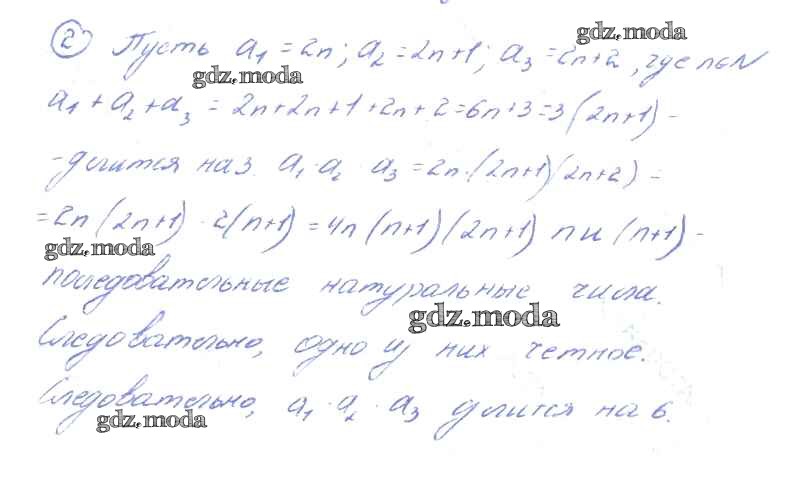 gdz.moda
② Пусть a₁ = 2n; a₂ = 2n+1; a₃ = 2n+2, где n∈N
gdz.moda
a₁ + a₂ + a₃ = 2n+2n+1+2n+2=6n+3=3(2n+1) -
- делится на 3. a₁·a₂·a₃ = 2n·(2n+1)(2n+2) =
= 2n(2n+1)·2(n+1) = 4n(n+1)(2n+1) n и (n+1) -
gdz.moda
последовательные натуральные числа.
gdz.moda
Следовательно, одно из них четное.
Следовательно, a₁·a₂·a₃ делится на 6.
gdz.moda